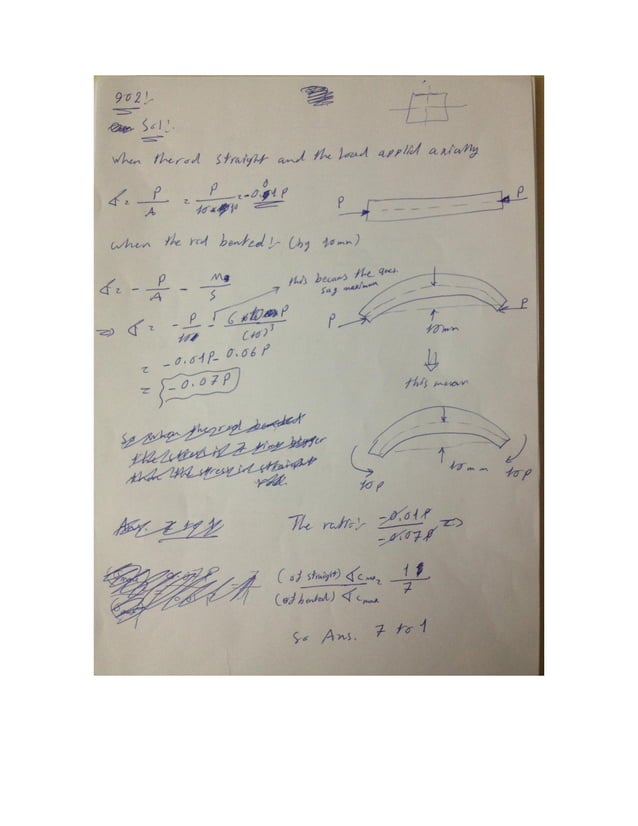 902:-
Sol:-
when the rod straight and the load applied axially
σ = P/A = P/10*10 = -0.01P
P P
when the rod bented:- (by 10mm)
σ = - P/A - M/S
this becaus the
sag maximum
⇒ σ = - P/100 - 6*10P/(10)³
P P
10mm
= -0.01P - 0.06P
= -0.07P
this mean
10mm
10P 10P
The ratio:- -0.01P/-0.07P ⇒
(of straight) σcmax / (of bented) σcmax = 1/7
So Ans. 7 to 1